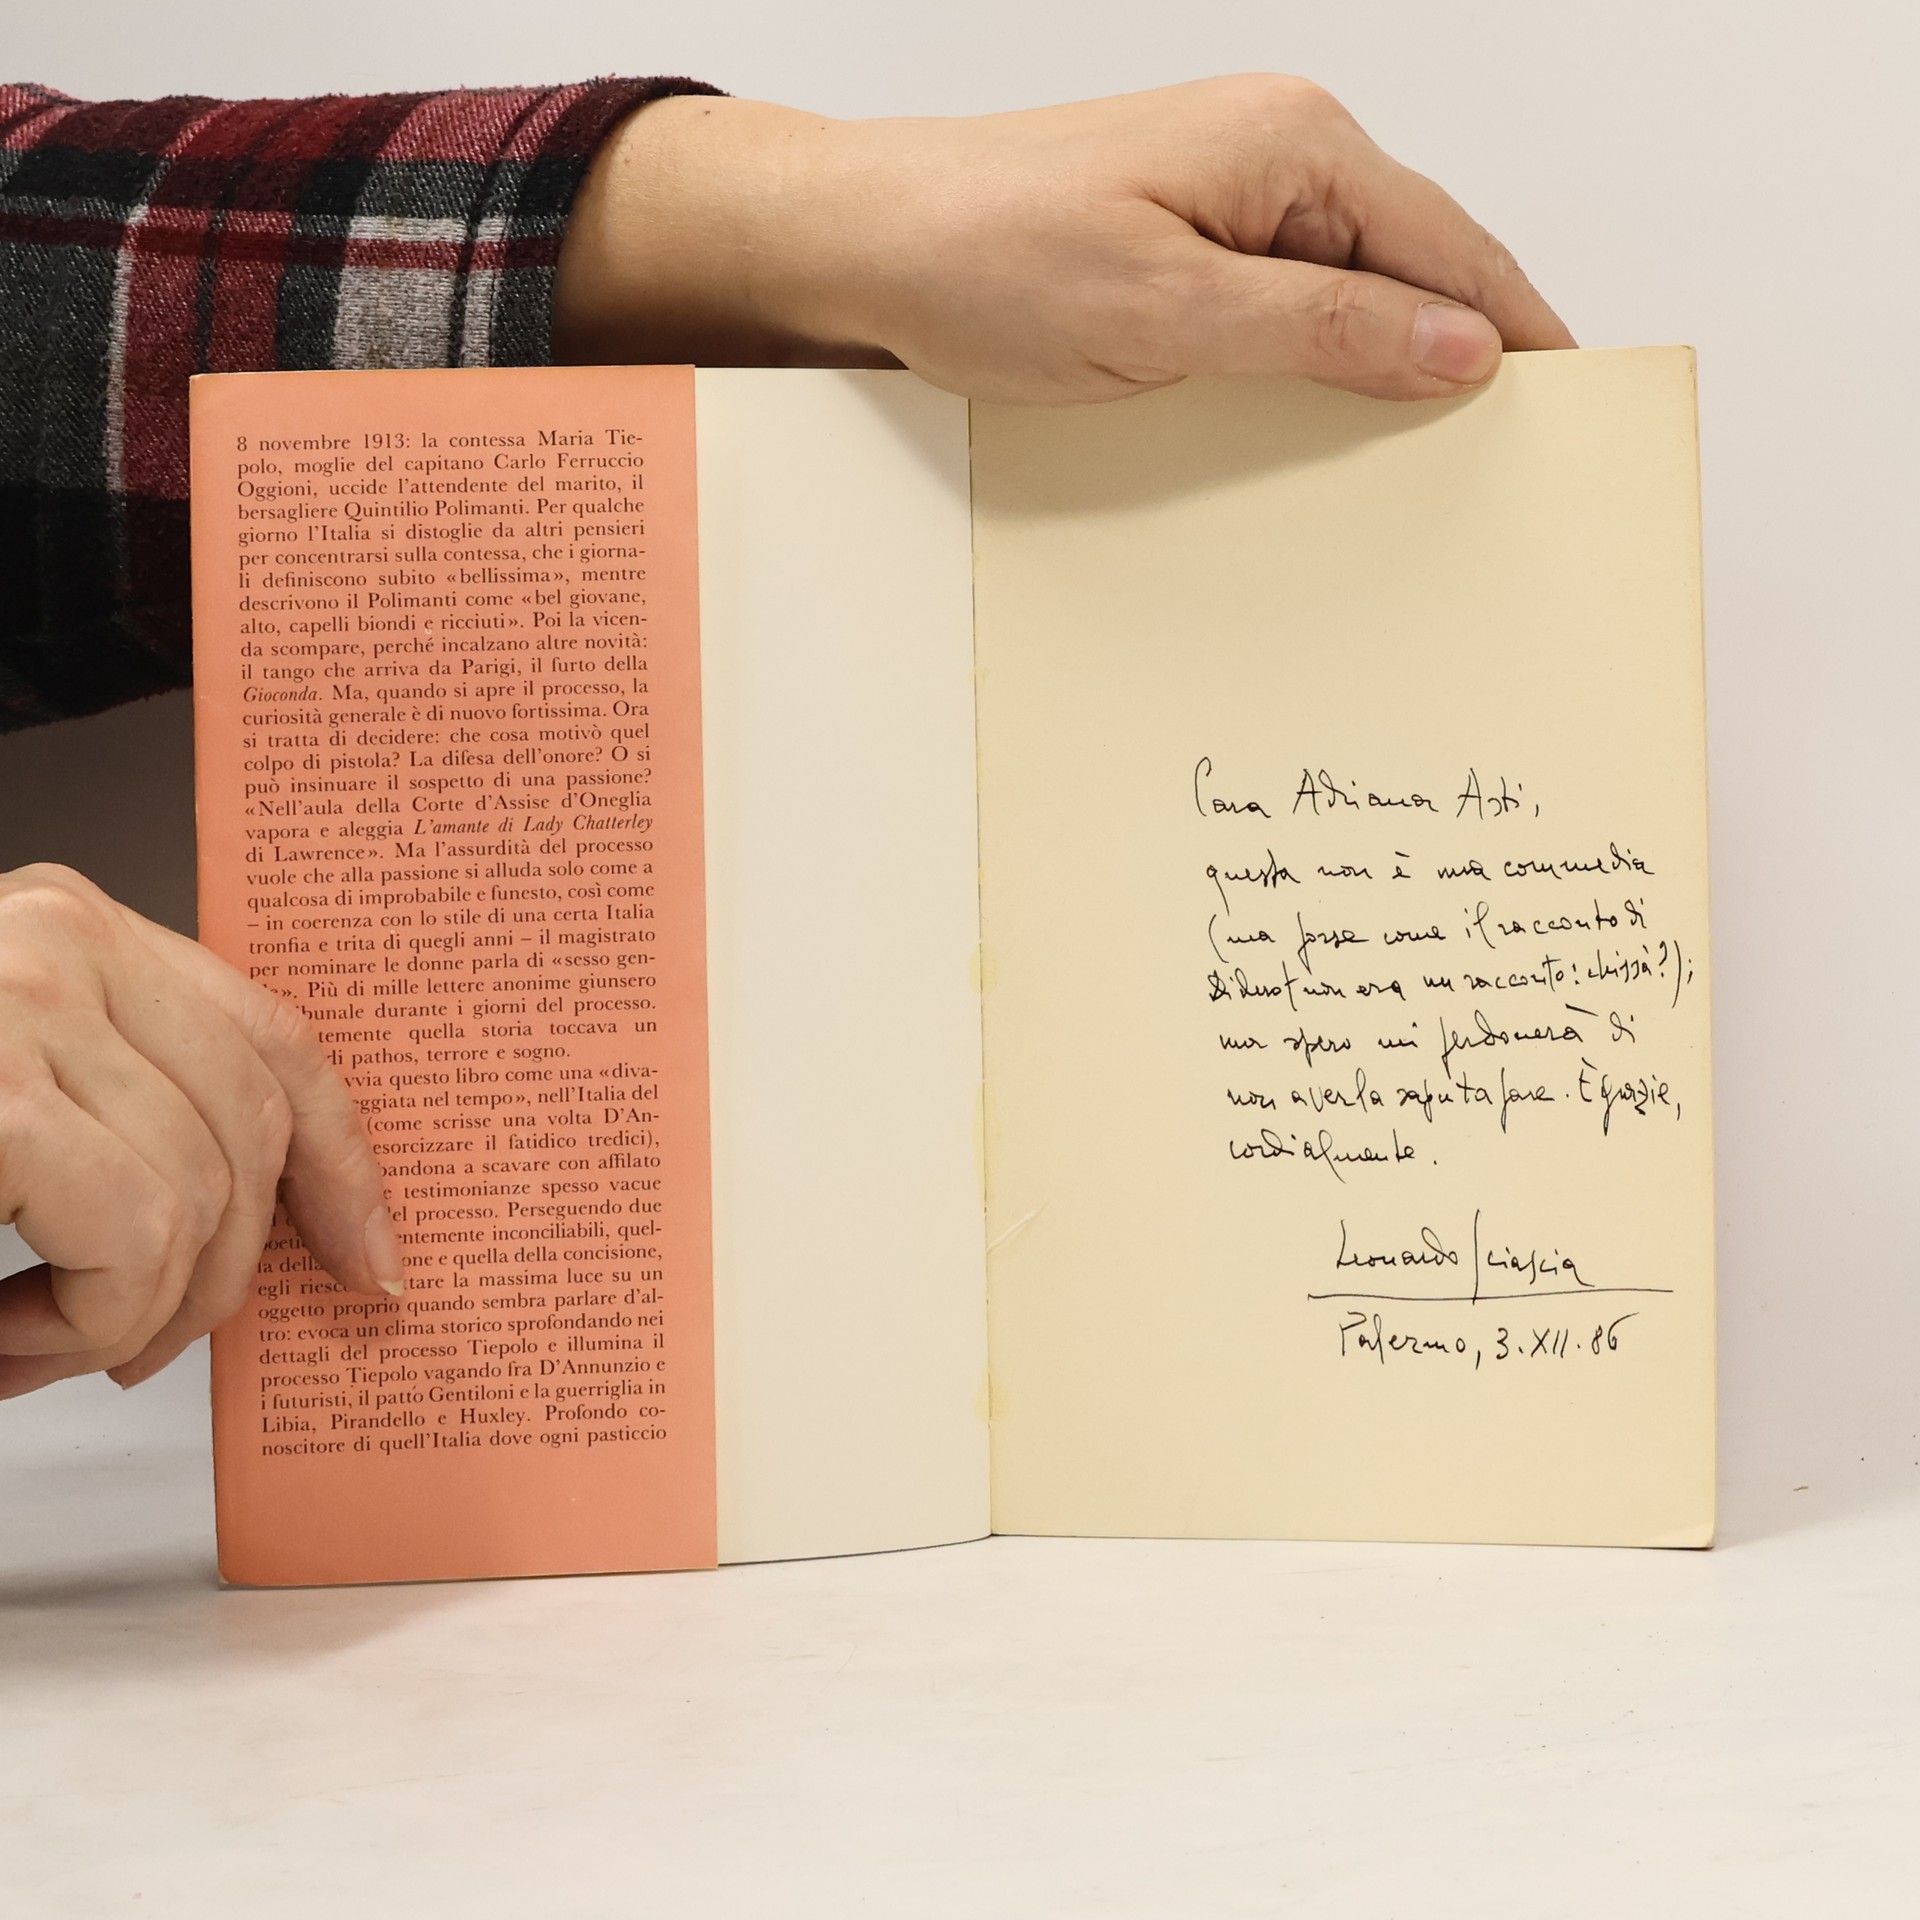 8 novembre 1913: la contessa Maria Tie-
polo, moglie del capitano Carlo Ferruccio
Oggioni, uccide l'attendente del marito, il
bersagliere Quintilio Polimanti. Per qualche
giorno l'Italia si distoglie da altri pensieri
per concentrarsi sulla contessa, che i giorna-
li definiscono subito «bellissima», mentre
descrivono il Polimanti come «bel giovane,
alto, capelli biondi e ricciuti». Poi la vicen-
da scompare, perché incalzano altre novità:
il tango che arriva da Parigi, il furto della
Gioconda. Ma, quando si apre il processo, la
curiosità generale è di nuovo fortissima. Ora
si tratta di decidere: che cosa motivò quel
colpo di pistola? La difesa dell'onore? O si
può insinuare il sospetto di una passione?
«Nell'aula della Corte d'Assise d'Oneglia
vapora e aleggia L'amante di Lady Chatterley
di Lawrence». Ma l'assurdità del processo
vuole che alla passione si alluda solo come a
qualcosa di improbabile e funesto, così come
– in coerenza con lo stile di una certa Italia
tronfia e trita di quegli anni – il magistrato
per nominare le donne parla di «sesso gen-
». Più di mille lettere anonime giunsero
bunale durante i giorni del processo.
temente quella storia toccava un
di pathos, terrore e sogno.
vvia questo libro come una «diva-
ggiata nel tempo», nell'Italia del
(come scrisse una volta D'An-
esorcizzare il fatidico tredici),
bandona a scavare con affilato
e testimonianze spesso vacue
el processo. Perseguendo due
entemente inconciliabili, quel-
la della one e quella della concisione,
egli riesce ttare la massima luce su un
oggetto proprio quando sembra parlare d'al-
tro: evoca un clima storico sprofondando nei
dettagli del processo Tiepolo e illumina il
processo Tiepolo vagando fra D'Annunzio e
i futuristi, il patto Gentiloni e la guerriglia in
Libia, Pirandello e Huxley. Profondo co-
noscitore di quell'Italia dove ogni pasticcio
Cara Adriana Asti,
questa non è una commedia
(ma forse come il racconto di
Diderot non era un racconto: chissà?);
ma spero mi perdonerà di
non averla saputa fare. E grazie,
cordialmente.
Leonardo Sciascia
Palermo, 3.XII.86